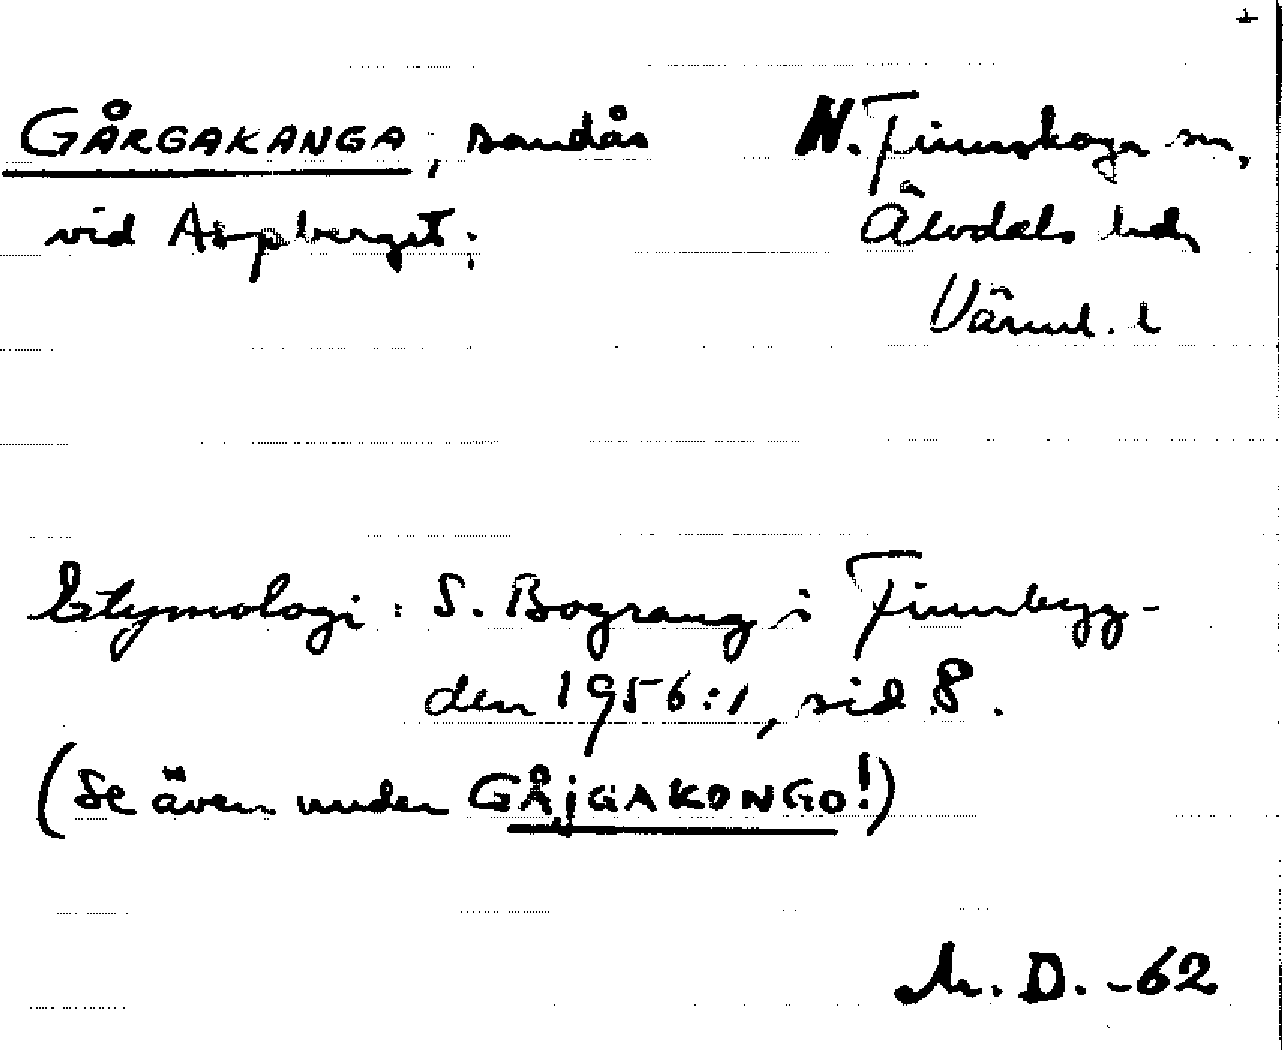 GÅRGAKANGA, sandås N. Finnskoga sn,
vid Aspberget. Älvdals hd,
Värml. l
Etymologi: S. Bograng i Finnbyg-
den 1956:1, sid 8.
(Se även under GÅjGAKONGO!)
M. D. -62